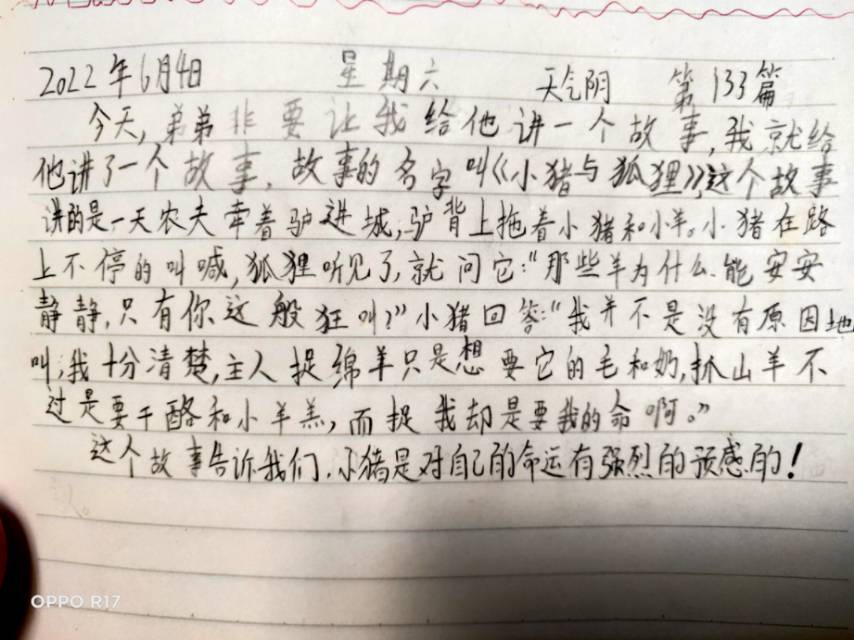 2022年6月4日 星期六 天气阴 第133篇
今天,弟弟非要让我给他讲一个故事,我就给
他讲了一个故事,故事的名字叫《小猪与狐狸》,这个故事
讲的是一天农夫牵着驴进城,驴背上拖着小猪和小羊。小猪在路
上不停的叫喊,狐狸听见了,就问它:“那些羊为什么能安安
静静,只有你这般狂叫?”小猪回答:“我并不是没有原因地
叫,我十分清楚,主人捉绵羊只是想要它的毛和奶,抓山羊不
过是要干酪和小羊羔,而捉我却是要我的命啊。”
这个故事告诉我们,小猪是对自己的命运有强烈的预感的!
OPPO R17